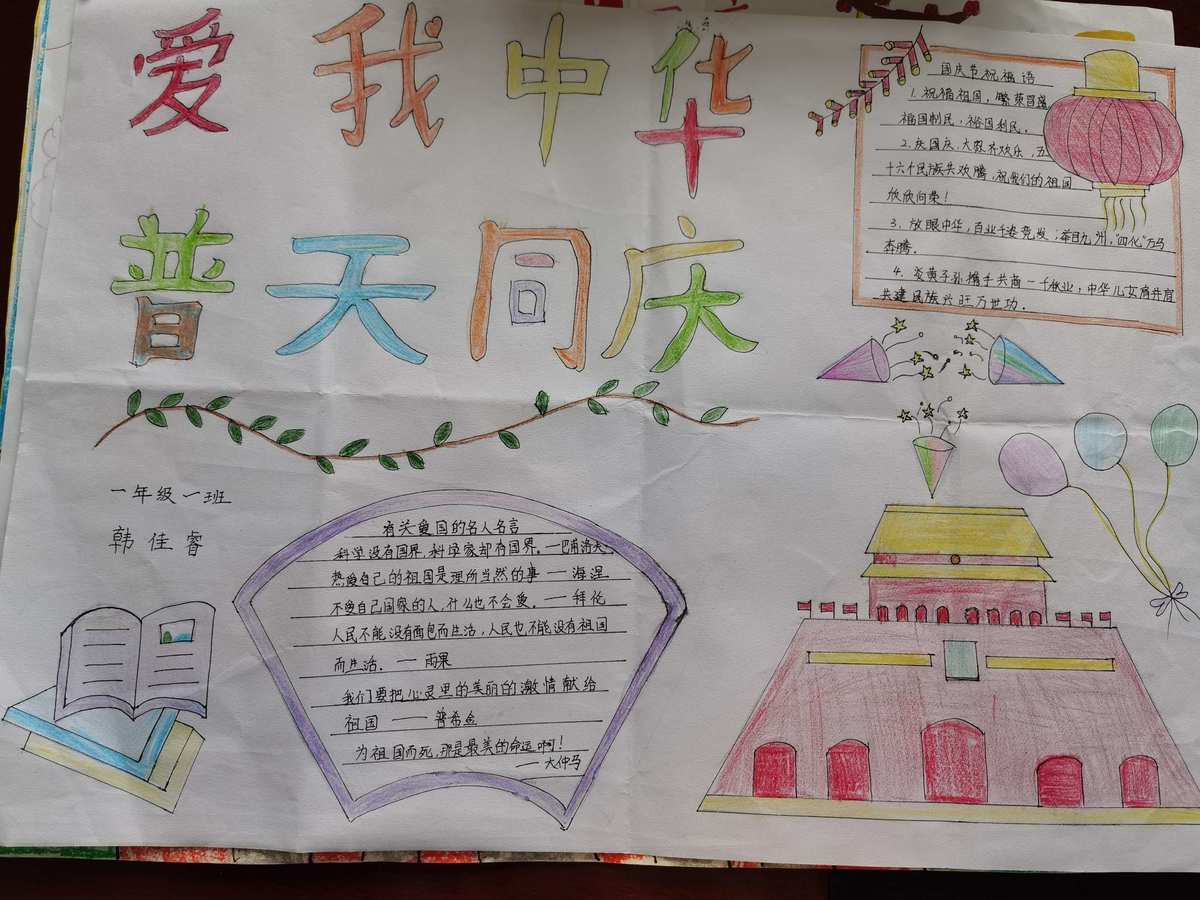 爱我中华
普天同庆
国庆节祝福语
1.祝福祖国,繁荣昌盛
福国利民,裕国利民。
2.庆国庆,大家齐欢乐,五
十六个民族共欢腾,祝我们的祖国
欣欣向荣!
3、放眼中华,百业千姿竞发;举目九州,“四化”万马
奔腾。
4、炎黄子孙携手共商一千秋业;中华儿女肩并肩
共建民族兴旺万世功.
一年级一班
韩佳睿
有关爱国的名人名言
科学没有国界,科学家却有国界。—巴甫洛夫
热爱自己的祖国是理所当然的事——海涅
不爱自己国家的人,什么也不会爱。——拜伦
人民不能没有面包而生活,人民也不能没有祖国
而生活.——雨果
我们要把心灵里的美丽的激情献给
祖国——普希金
为祖国而死,那是最美的命运啊!
——大仲马